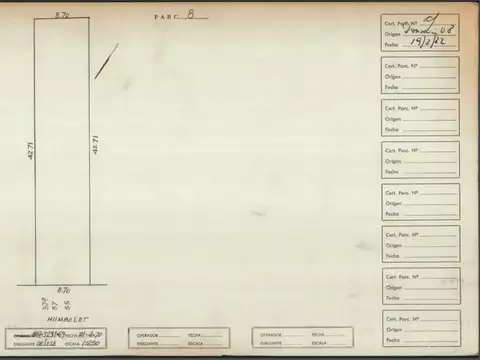 8.70
PARC. 8
42.71
42.71
8.70
57
55
HUMBOLDT
OPERADOR FECHA 21-4-70
DIBUJANTE ESCALA 1/250
OPERADOR FECHA
DIBUJANTE ESCALA
OPERADOR FECHA
DIBUJANTE ESCALA
Cert. Parc. Nº
Origen
Fecha 19/2/22
Cert. Parc. Nº
Origen
Fecha
Cert. Parc. Nº
Origen
Fecha
Cert. Parc. Nº
Origen
Fecha
Cert. Parc. Nº
Origen
Fecha
Cert. Parc. Nº
Origen
Fecha
Cert. Parc. Nº
Origen
Fecha
Cert. Parc. Nº
Origen
Fecha